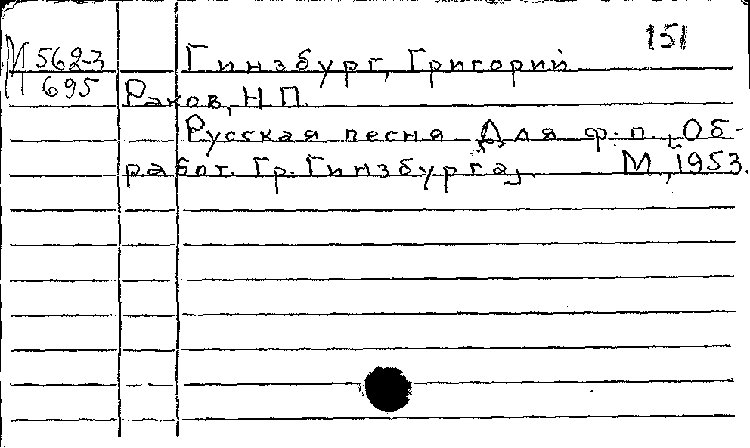 151
М 562-3 Гинзбург, Григорий
695 Раков, Н.П.
Русская песня. Для ф.-п., [Об-
работ. Гр. Гинзбурга]. М., 1953.